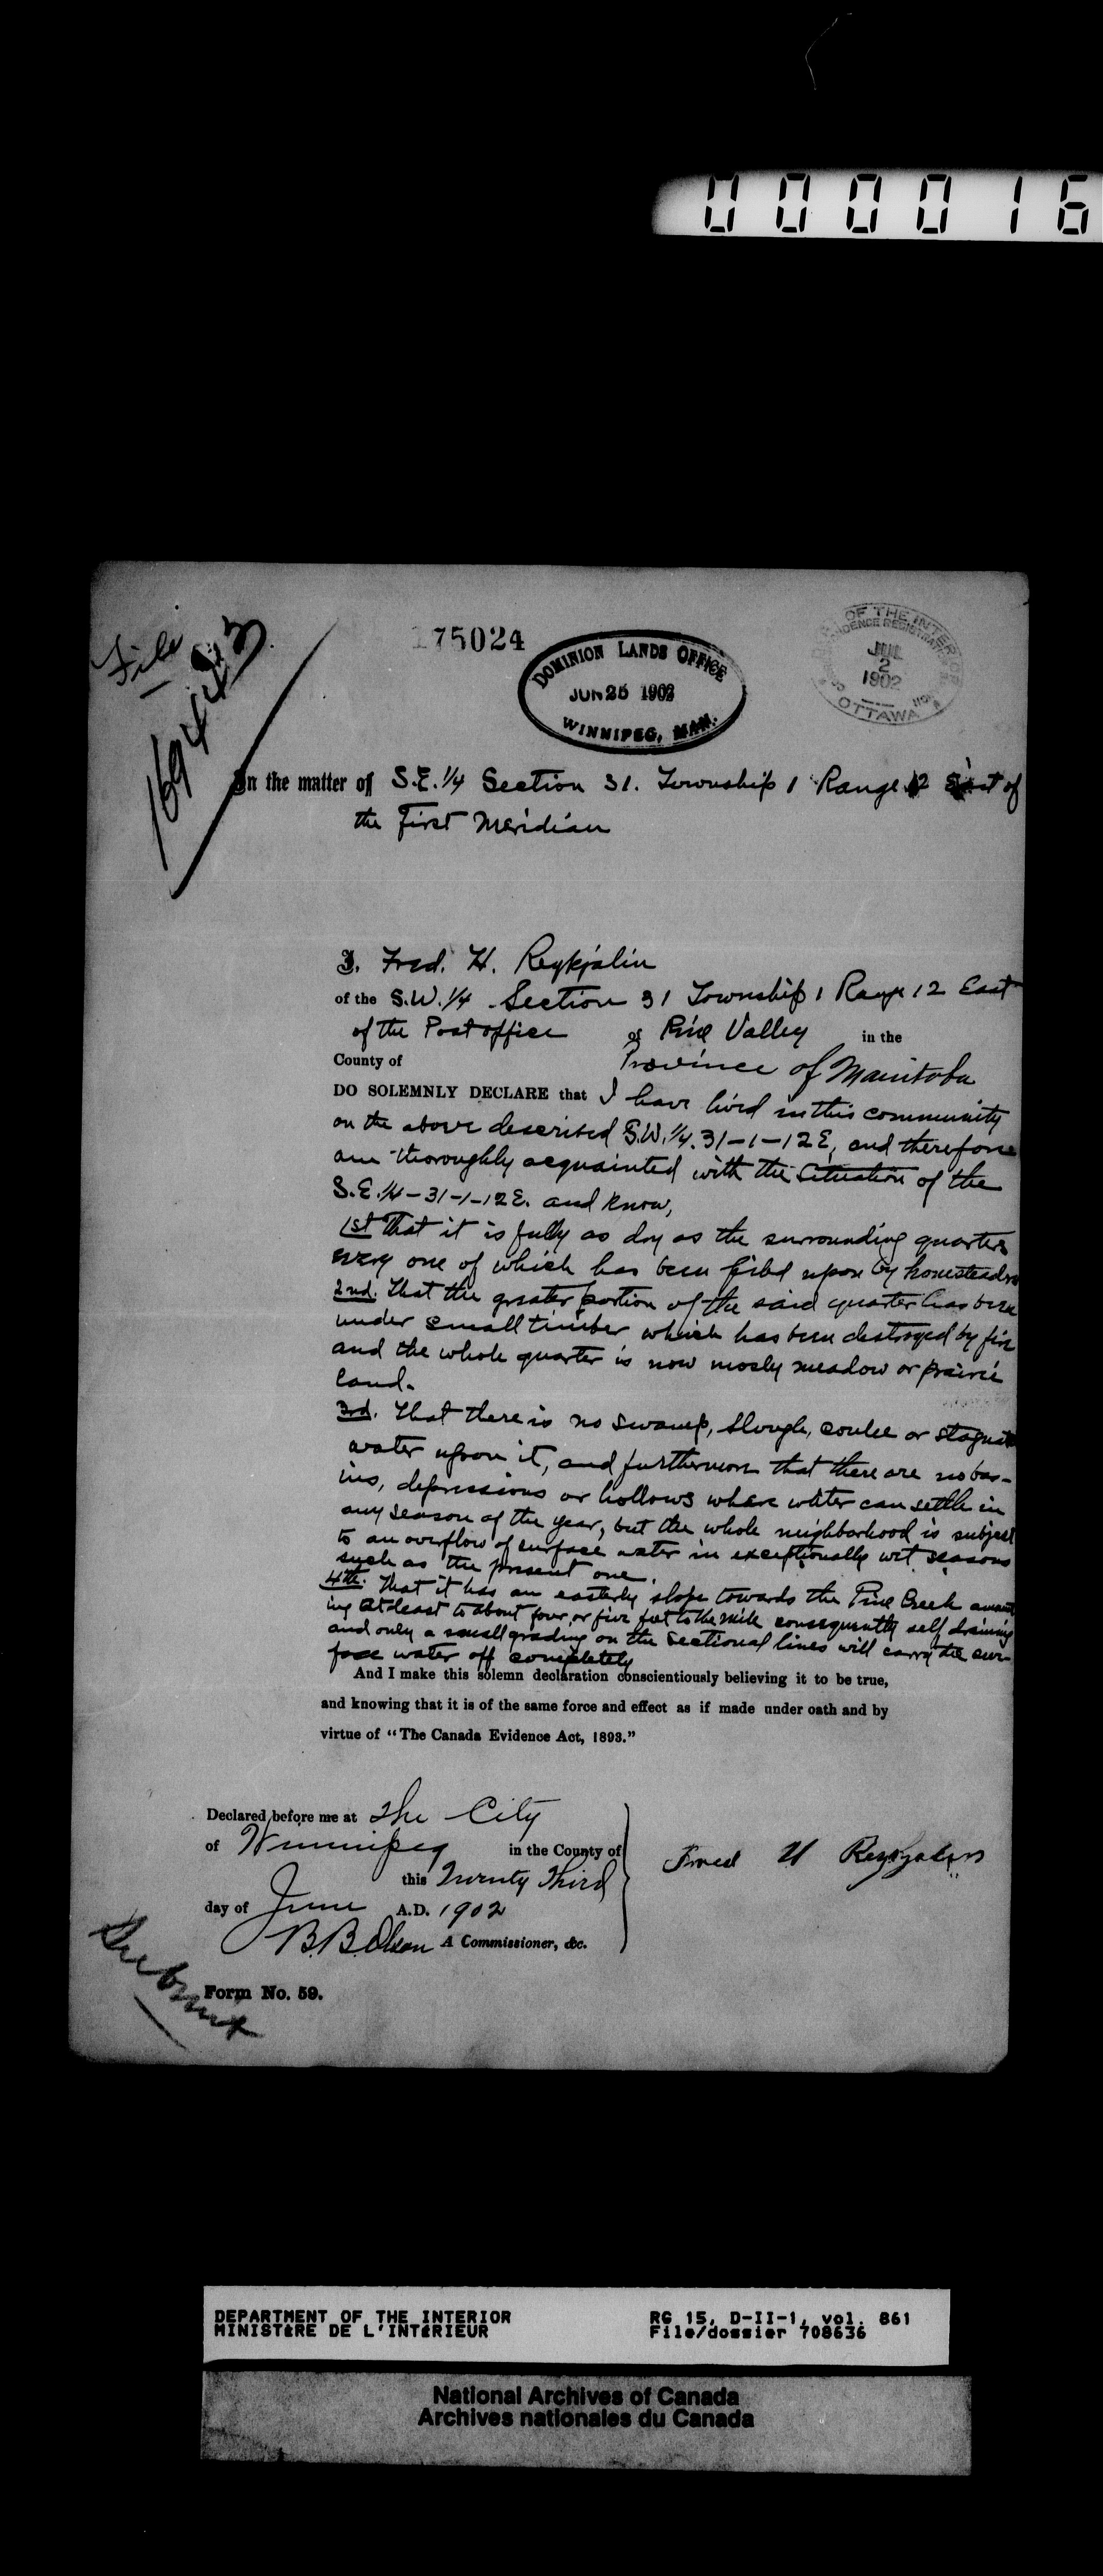 000016
File
169443
175024
DOMINION LANDS OFFICE
JUN 25 1902
WINNIPEG, MAN.
OF THE INTERIOR
JUL
2
1902
OTTAWA
In the matter of S.E. 1/4 Section 31. Township 1 Range 12 East of
the First Meridian
I. Fred. H. Reykjalin
of the S.W. 1/4 Section 31 Township 1 Range 12 East
of the Postoffice of Pine Valley in the
County of Province of Manitoba
DO SOLEMNLY DECLARE that I have lived in this community
on the above described S.W. 1/4. 31-1-12 E, and therefore
am thoroughly acquainted with the situation of the
S.E. 1/4-31-1-12 E. and know,
1st That it is fully as dry as the surrounding quarters
every one of which has been filed upon by homesteaders
2nd. That the greater portion of the said quarter has been
under small timber which has been destroyed by fire
and the whole quarter is now mosly meadow or prairie
land.
3rd. That there is no swamp, slough, coulee or stagnate
water upon it, and furthermore that there are no bas-
ins, depressions or hollows where water can settle in
any season of the year, but the whole neighborhood is subject
to an overflow of surface water in exceptionally wet seasons
such as the present one.
4th. That it has an easterly slope towards the Pine Creek amount
ing at least to about four or five feet to the mile consequently self draining
and only a small grading on the sectional lines will carry the sur-
face water off completely
And I make this solemn declaration conscientiously believing it to be true,
and knowing that it is of the same force and effect as if made under oath and by
virtue of "The Canada Evidence Act, 1893."
Declared before me at The City
of Winnipeg in the County of
this Twenty Third
day of June A.D. 1902
B. B. Olson A Commissioner, &c.
Fred H Reykjalin
Submit
Form No. 59.
DEPARTMENT OF THE INTERIOR RG 15, D-II-1, vol. 861
MINISTÈRE DE L'INTÉRIEUR File/dossier 708636
National Archives of Canada
Archives nationales du Canada